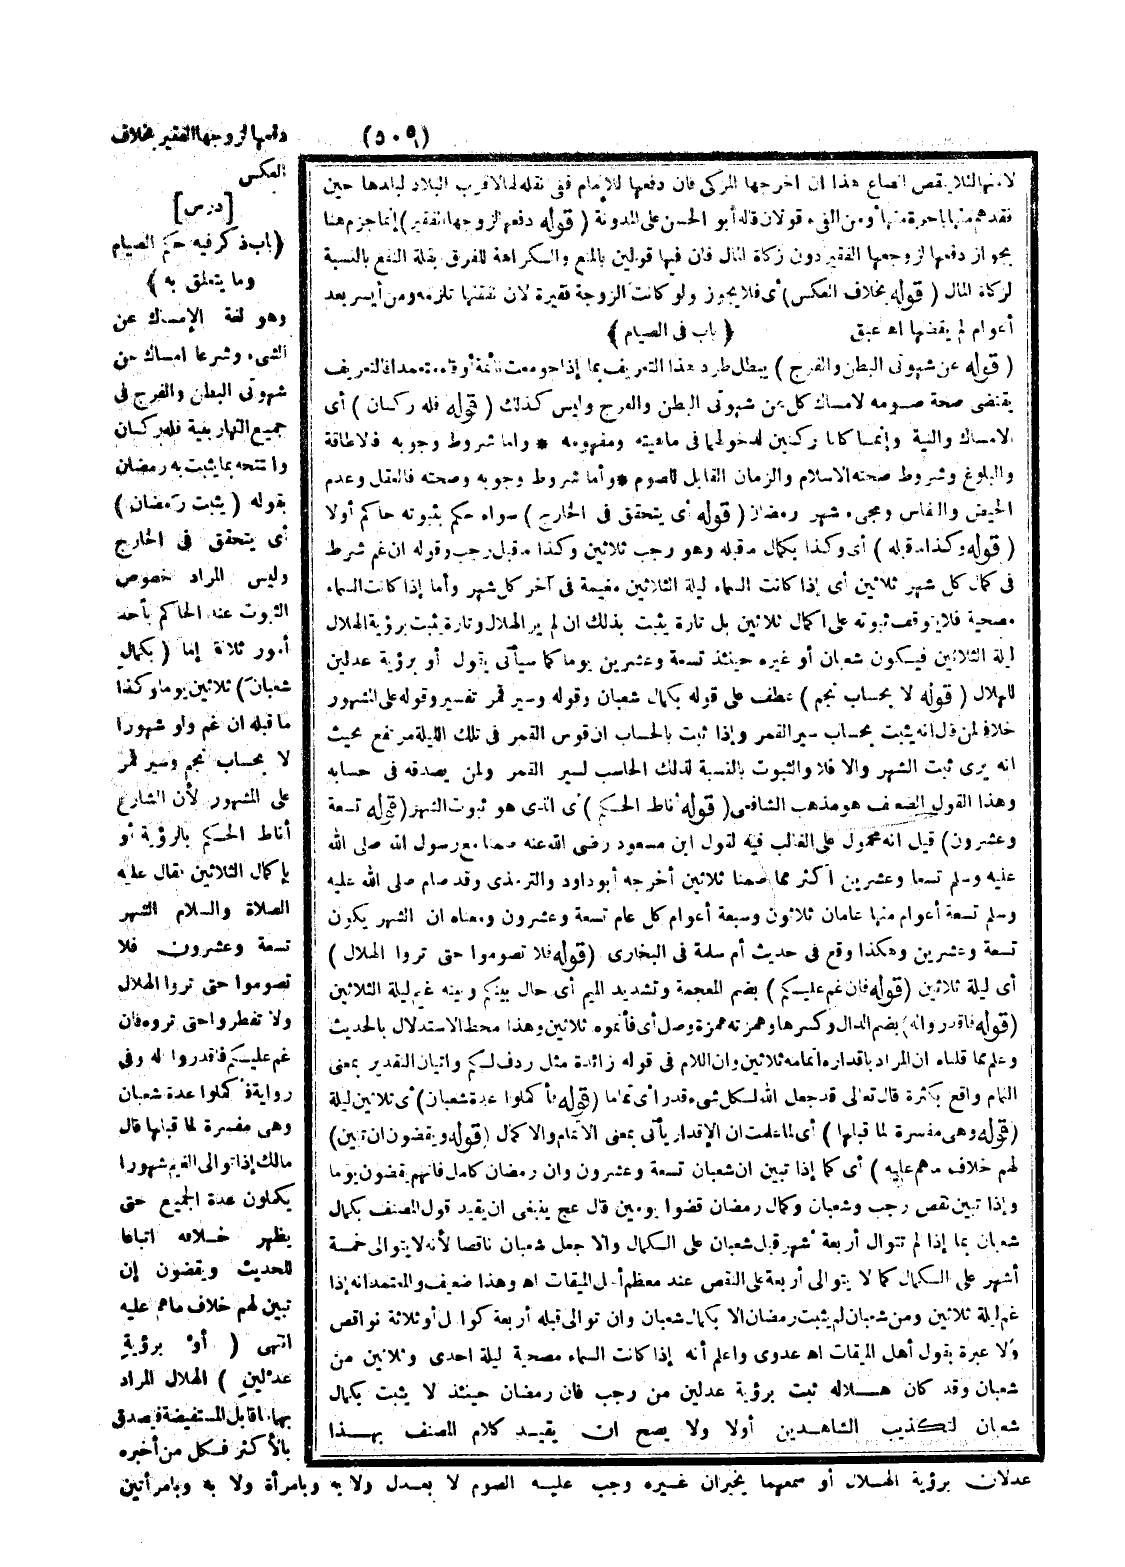 (٥٠٩)
دفعها لزوجها الفقير بخلاف
العكس
[درس]
(باب ذكر فيه حكم الصيام
وما يتعلق به)
وهو لغة الإمساك عن
الشيء وشرعا امساك عن
شهوتى البطن والفرج فى
جميع النهار بنية فله ركنان
وافتتحه بما يثبت به رمضان
بقوله (يثبت رمضان)
أى يتحقق فى الخارج
وليس المراد خصوص
الثبوت عند الحاكم بأحد
أمور ثلاثة إما (بكمال
شعبان) ثلاثين يوما وكذا
ما قبله ان غم ولو شهورا
لا بحساب نجم وسير قمر
على المشهور لأن الشارع
أناط الحكم بالرؤية أو
بإكمال الثلاثين فقال عليه
الصلاة والسلام الشهر
تسعة وعشرون فلا
تصوموا حتى تروا الهلال
ولا تفطروا حتى تروه فان
غم عليكم فاقدروا له وفى
رواية فأكملوا عدة شعبان
وهى مفسرة لما قبلها قال
مالك إذا توالى الغيم شهورا
يكملون عدة الجميع حتى
يظهر خلافه اتباعا
للحديث ويقضون إن
تبين لهم خلاف ماهم عليه
انتهى (أو برؤية
عدلين) الهلال المراد
بهما ما قابل المستفيضة فيصدق
بالأكثر فكل من أخبره
عدلان برؤية الهلال أو سمعهما يخبران غيره وجب عليه الصوم لا بعدل ولا به وبامرأة ولا به وبامرأتين
لانها لئلا ينقص الصاع هذا ان اخرجها المزكى فان دفعها للامام ففى نقله لها لاقرب البلاد لبلدها حين
فقدهم منها باجرة منها أو من الفىء قولان قاله أبو الحسن على المدونة (قوله دفعها لزوجها الفقير) إنما جزم هنا
بجواز دفعها لزوجها الفقير دون زكاة المال فان فيها قولين بالمنع والكراهة للفرق بقلة النفع بالنسبة
لزكاة المال (قوله بخلاف العكس) أى فلا يجوز ولو كانت الزوجة فقيرة لان نفقتها تلزمه ومن أيسر بعد
أعوام لم يقضها اه عبق
(باب فى الصيام)
(قوله عن شهوتى البطن والفرج) يبطل طرد هذا التعريف بما إذا جومعت نائمة أو فائتة عمدا فالتعريف
يقتضى صحة صومه لامساك كل عن شهوتى البطن والفرج وليس كذلك (قوله فله ركنان) أى
الامساك والنية وإنما كانا ركنين لدخولهما فى ماهيته ومفهومه * واما شروط وجوبه فالاطاقة
والبلوغ وشروط صحته الاسلام والزمان القابل للصوم * وأما شروط وجوبه وصحته فالعقل وعدم
الحيض والنفاس ومجىء شهر رمضان (قوله أى يتحقق فى الخارج) سواء حكم بثبوته حاكم أولا
(قوله وكذا ما قبله) أى وكذا بكمال ما قبله وهو رجب ثلاثين وكذا ما قبل رجب وقوله ان غم شرط
فى كمال كل شهر ثلاثين أى إذا كانت السماء ليلة الثلاثين مغيمة فى آخر كل شهر وأما إذا كانت السماء
مصحية فلا يتوقف ثبوته على اكمال ثلاثين بل تارة يثبت بذلك ان لم ير الهلال وتارة يثبت برؤية الهلال
ليلة الثلاثين فيكون شعبان أو غيره حينئذ تسعة وعشرين يوما كما سيأتى يقول أو برؤية عدلين
للهلال (قوله لا بحساب نجم) عطف على قوله بكمال شعبان وقوله وسير قمر تفسير وقوله على المشهور
خلافا لمن قال انه يثبت بحساب سير القمر وإذا ثبت بالحساب ان قوس القمر فى تلك الليلة مرتفع بحيث
انه يرى ثبت الشهر والا فلا والثبوت بالنسبة لذلك الحاسب لسير القمر ولمن يصدقه فى حسابه
وهذا القول الضعيف هو مذهب الشافعى (قوله أناط الحكم) أى الذى هو ثبوت الشهر (قوله تسعة
وعشرون) قيل انه محمول على الغالب فيه لقول ابن مسعود رضى الله عنه صمنا مع رسول الله صلى الله
عليه وسلم تسعا وعشرين أكثر مما صمنا ثلاثين أخرجه أبو داود والترمذى وقد صام صلى الله عليه
وسلم تسعة أعوام منها عامان ثلاثون وسبعة أعوام كل عام تسعة وعشرون ومعناه ان الشهر يكون
تسعة وعشرين وهكذا وقع فى حديث أم سلمة فى البخارى (قوله فلا تصوموا حتى تروا الهلال)
أى ليلة ثلاثين (قوله فان غم عليكم) بضم المعجمة وتشديد الميم أى حال بينكم وبينه غيم ليلة الثلاثين
(قوله فاقدروا له) بضم الدال وكسرها وهمزته همزة وصل أى فأتموه ثلاثين وهذا محط الاستدلال بالحديث
وعلم مما قلناه ان المراد باقداره اتمامه ثلاثين وان اللام فى قوله زائدة مثل ردف لكم واتيان التقدير بمعنى
التمام واقع بكثرة قال تعالى قد جعل الله لكل شىء قدرا أى تماما (قوله فأكملوا عدة شعبان) أى ثلاثين ليلة
(قوله وهى مفسرة لما قبلها) أى لما علمت ان الإقدار يأتى بمعنى الاتمام والاكمال (قوله ويقضون ان تبين)
لهم خلاف ما هم عليه) أى كما إذا تبين ان شعبان تسعة وعشرون وان رمضان كامل فانهم يقضون يوما
وإذا تبين نقص رجب وشعبان وكمال رمضان قضوا يومين قال عج ينبغى ان يقيد قول المصنف بكمال
شعبان بما إذا لم تتوال أربعة أشهر قبل شعبان على الكمال والا جعل شعبان ناقصا لأنه لا يتوالى خمسة
أشهر على الكمال كما لا يتوالى أربعة على النقص عند معظم أهل الميقات اه وهذا ضعيف والمعتمد انه إذا
غم ليلة ثلاثين ومن شعبان لم يثبت رمضان الا بكمال شعبان وان توالى قبله أربعة كوامل أو ثلاثة نواقص
ولا عبرة بقول أهل الميقات اه عدوى واعلم أنه إذا كانت السماء مصحية ليلة احدى وثلاثين من
شعبان وقد كان هلاله ثبت برؤية عدلين من رجب فان رمضان حينئذ لا يثبت بكمال
شعبان لتكذيب الشاهدين أولا ولا يصح ان يقيد كلام المصنف بهذا